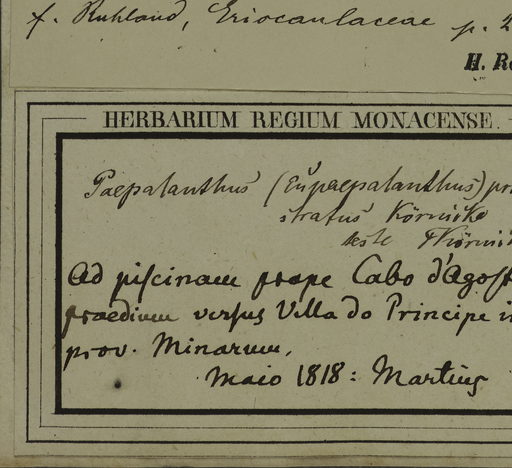 f. Ruhland, Eriocaulaceae p. 2
H. Ro
HERBARIUM REGIUM MONACENSE.
Paepalanthus (Eupaepalanthus) pro
stratus Körnicke
teste FKörnick
Ad piscinam prope Cabo d'Agost
praedium versus Villa do Principe in
prov. Minarum.
Maio 1818: Martius